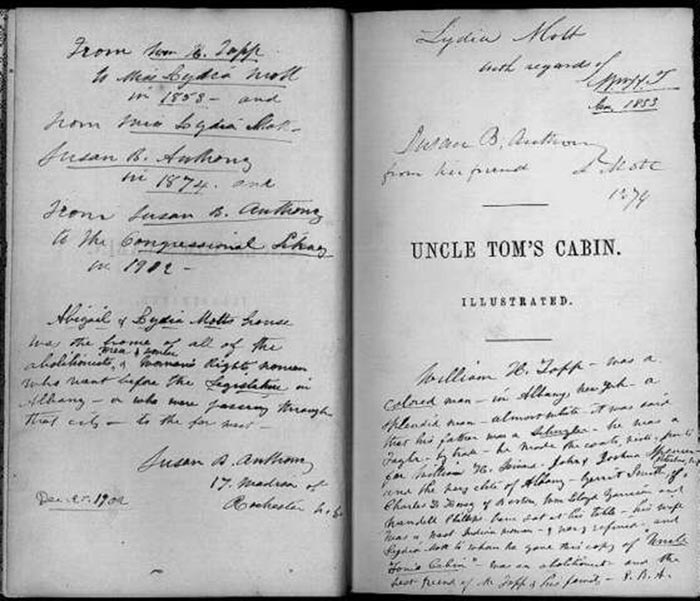 From Wm H. Topp
to Miss Lydia Mott
in 1853 - and
from Miss Lydia Mott -
Susan B. Anthony
in 1874. and
From Susan B. Anthony
to the Congressional Library
in 1902 -
Abigail & Lydia Motts house
was the home of all of the
abolitionists, men & women & Woman's Rights women
who went before the Legislature in
Albany - or who were passing through
that city - to the far west -
Susan B. Anthony
17 Madison st
Rochester N.Y.
Dec. 25. 1902
Lydia Mott
with regard of
Wm H. T
1853
Susan B. Anthony
from her friend L Mott
1874
UNCLE TOM'S CABIN.
ILLUSTRATED.
William H. Topp - was a
colored man - in Albany New York - a
splendid man - almost white. it was said
that his father was a - he was a
Taylor - by trade - he made the coats, vests, pants
for William H. John & Joshua Spencer
and the very elite of Albany - Gerrit Smith of Peterboro, N.Y.
Charles of Boston, Wm Lloyd Garrison and
Wendell Phillips have sat at his table - his wife
was a West Indian woman - & very refined - and
Lydia Mott to whom he gave this copy of "Uncle
Tom's Cabin" - was an abolitionist and the
best friend of Mr Topp & his family - S. B. A.